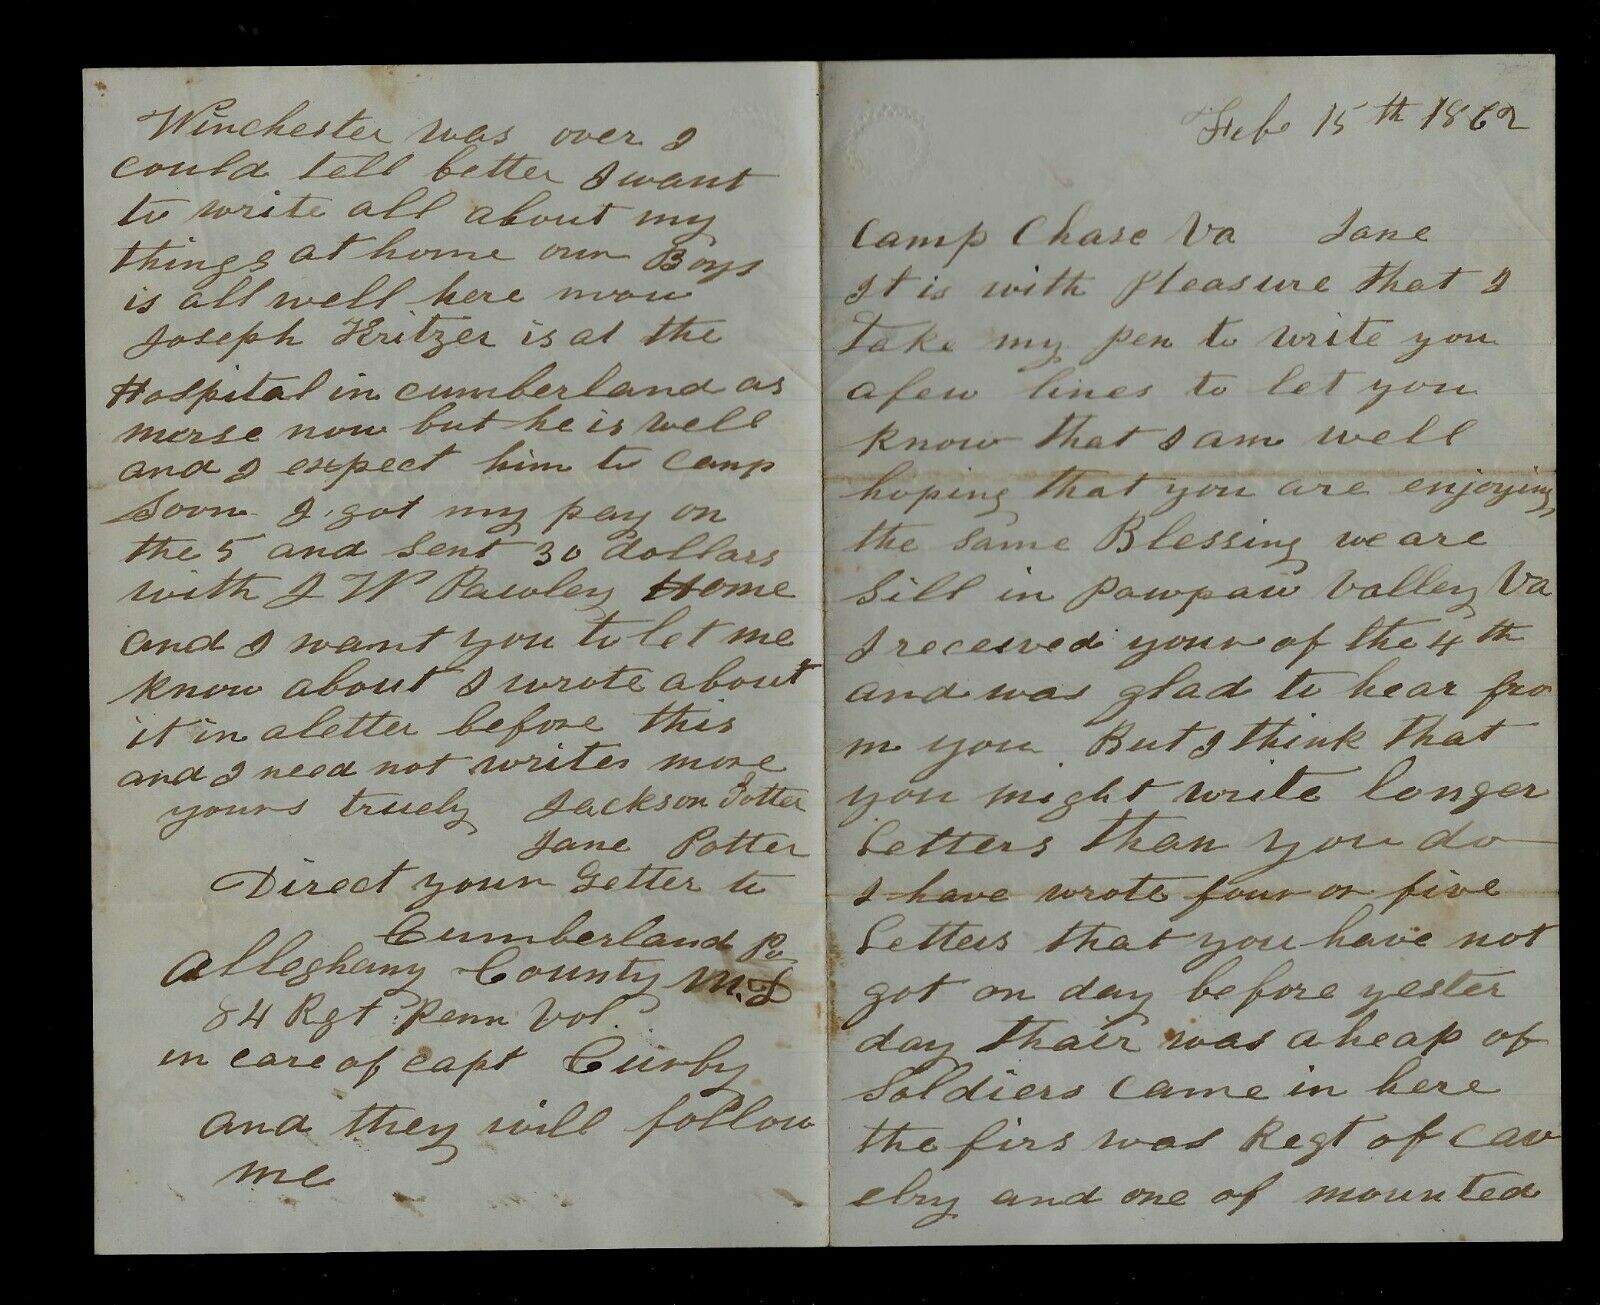 Feb 15th 1862
Camp Chase Va Jane
It is with Pleasure that I
Take my pen to write you
afew lines to let you
know that I am well
hoping that you are enjoying
the same Blessing we are
Sill in pawpaw valley Va
I received your of the 4th
and was glad to hear fro
m you But I think that
you might write longer
letters than you do
I have wrote four or five
letters that you have not
got on day before yester
day thair was a heap of
Soldiers came in here
the firs was Regt of cav
elry and one of mounted
Winchester was over I
could tell better I want
to write all about my
things at home our Boys
is all well here
Joseph Kritzer is at the
Hospital in cumberland as
nurse now but he is well
and I expect him to camp
Soon I got my pay on
the 5 and sent 30 dollars
with J W Pawley Home
and I want you to let me
know about I wrote about
it in aletter before this
and I need not write more
yours truely Jackson Potter
Jane Potter
Direct your Letter to
Cumberland
Alleghany County M.D
84 Rgt Penn Vol.
in care of capt
and they will follow
me